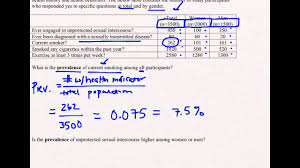 who responded yes in specific questions in total and by gender.
Total Women Men
(n=3500) (n=2000) (n=1500)
Ever engaged in unprotected sexual intercourse? 450 100 350
Ever been diagnosed with a sexually transmitted disease? 80 60 20
Current smoker? 262 161 101
Smoked any cigarettes within the past year?
Exercise at least 3 times per week?
What is the prevalence of current smoking among all participants?
Prev. = # w/ health indicator
total population
= 262 = 0.075 = 7.5%
3500
Is the prevalence of unprotected sexual intercourse higher among women or men?